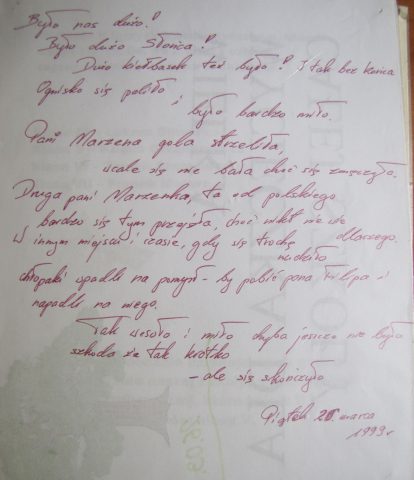 Było nas dużo!
Było dużo Słońca!
Dużo kiełbasek też było! I tak bez końca
Ognisko się paliło
i
było bardzo miło.
Pani Marzena gola strzeliła,
wcale się nie bała choć się zmęczyła.
Druga pani Marzenka, ta od polskiego
bardzo się tym przejęła, choć nikt nie wie
dlaczego.
W innym miejscu i czasie, gdy się trochę
nudziło
chłopaki wpadli na pomysł - by pobić pana Filipa i
napadli na niego.
Tak wesoło i miło chyba jeszcze nie było
szkoda że tak krótko
- ale się skończyło
Piątek 26 marca
1999r